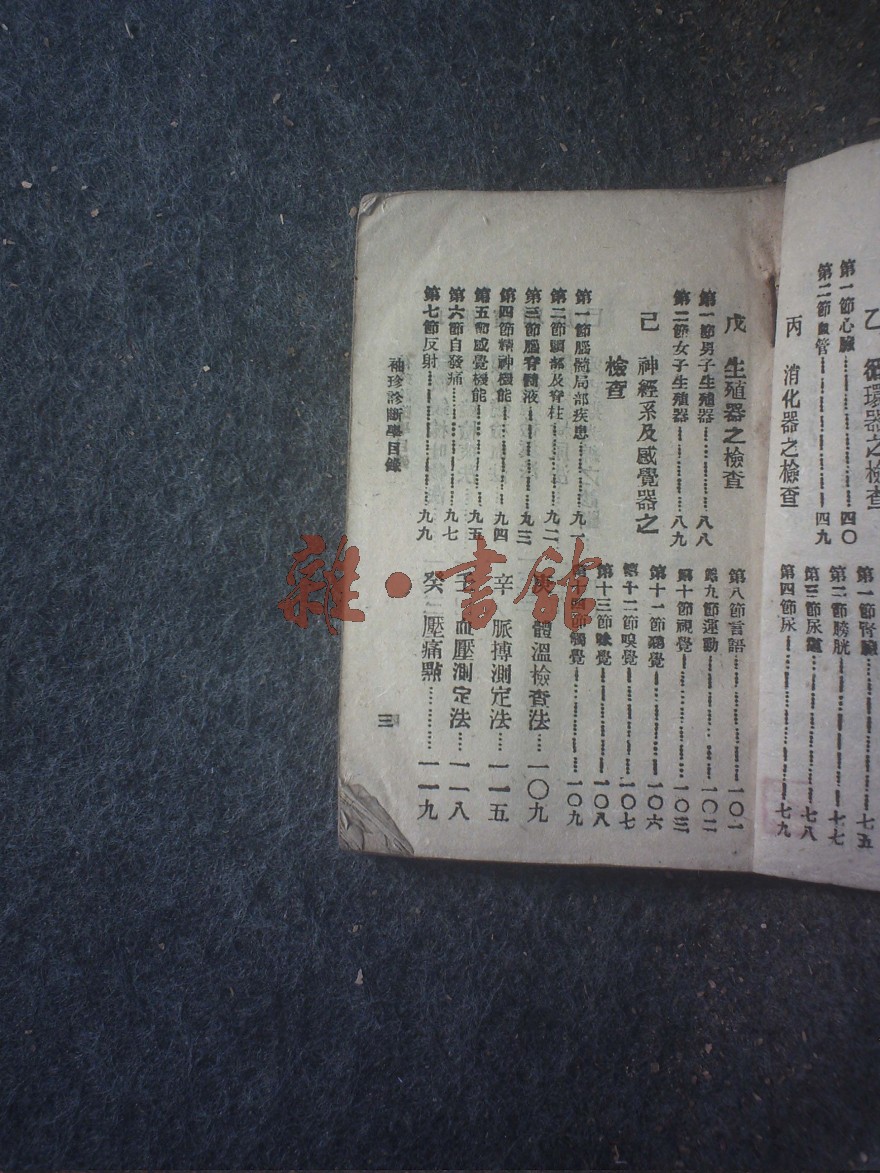 乙 循環器之檢查
第一節心臟……四〇
第二節血管……四九
丙 消化器之檢查
第一節腎臟……七五
第二節膀胱……七七
第三節尿道……七八
第四節尿……七九
戊 生殖器之檢查
第一節男子生殖器……八八
第二節女子生殖器……八九
己 神經系及感覺器之
檢查
第一節腦髓局部疾患……九一
第二節頭部及脊柱……九二
第三節腦脊髓液……九三
第四節精神機能……九四
第五節感覺機能……九五
第六節自發痛……九七
第七節反射……九九
第八節言語……一〇一
第九節運動……一〇二
第十節視覺……一〇三
第十一節聽覺……一〇六
第十二節嗅覺……一〇七
第十三節味覺……一〇八
第十四節觸覺……一〇九
庚 體溫檢查法……一〇九
辛 脈搏測定法……一一五
壬 血壓測定法……一一八
癸 壓痛點……一一九
袖珍診斷學目錄
三
雜·書館